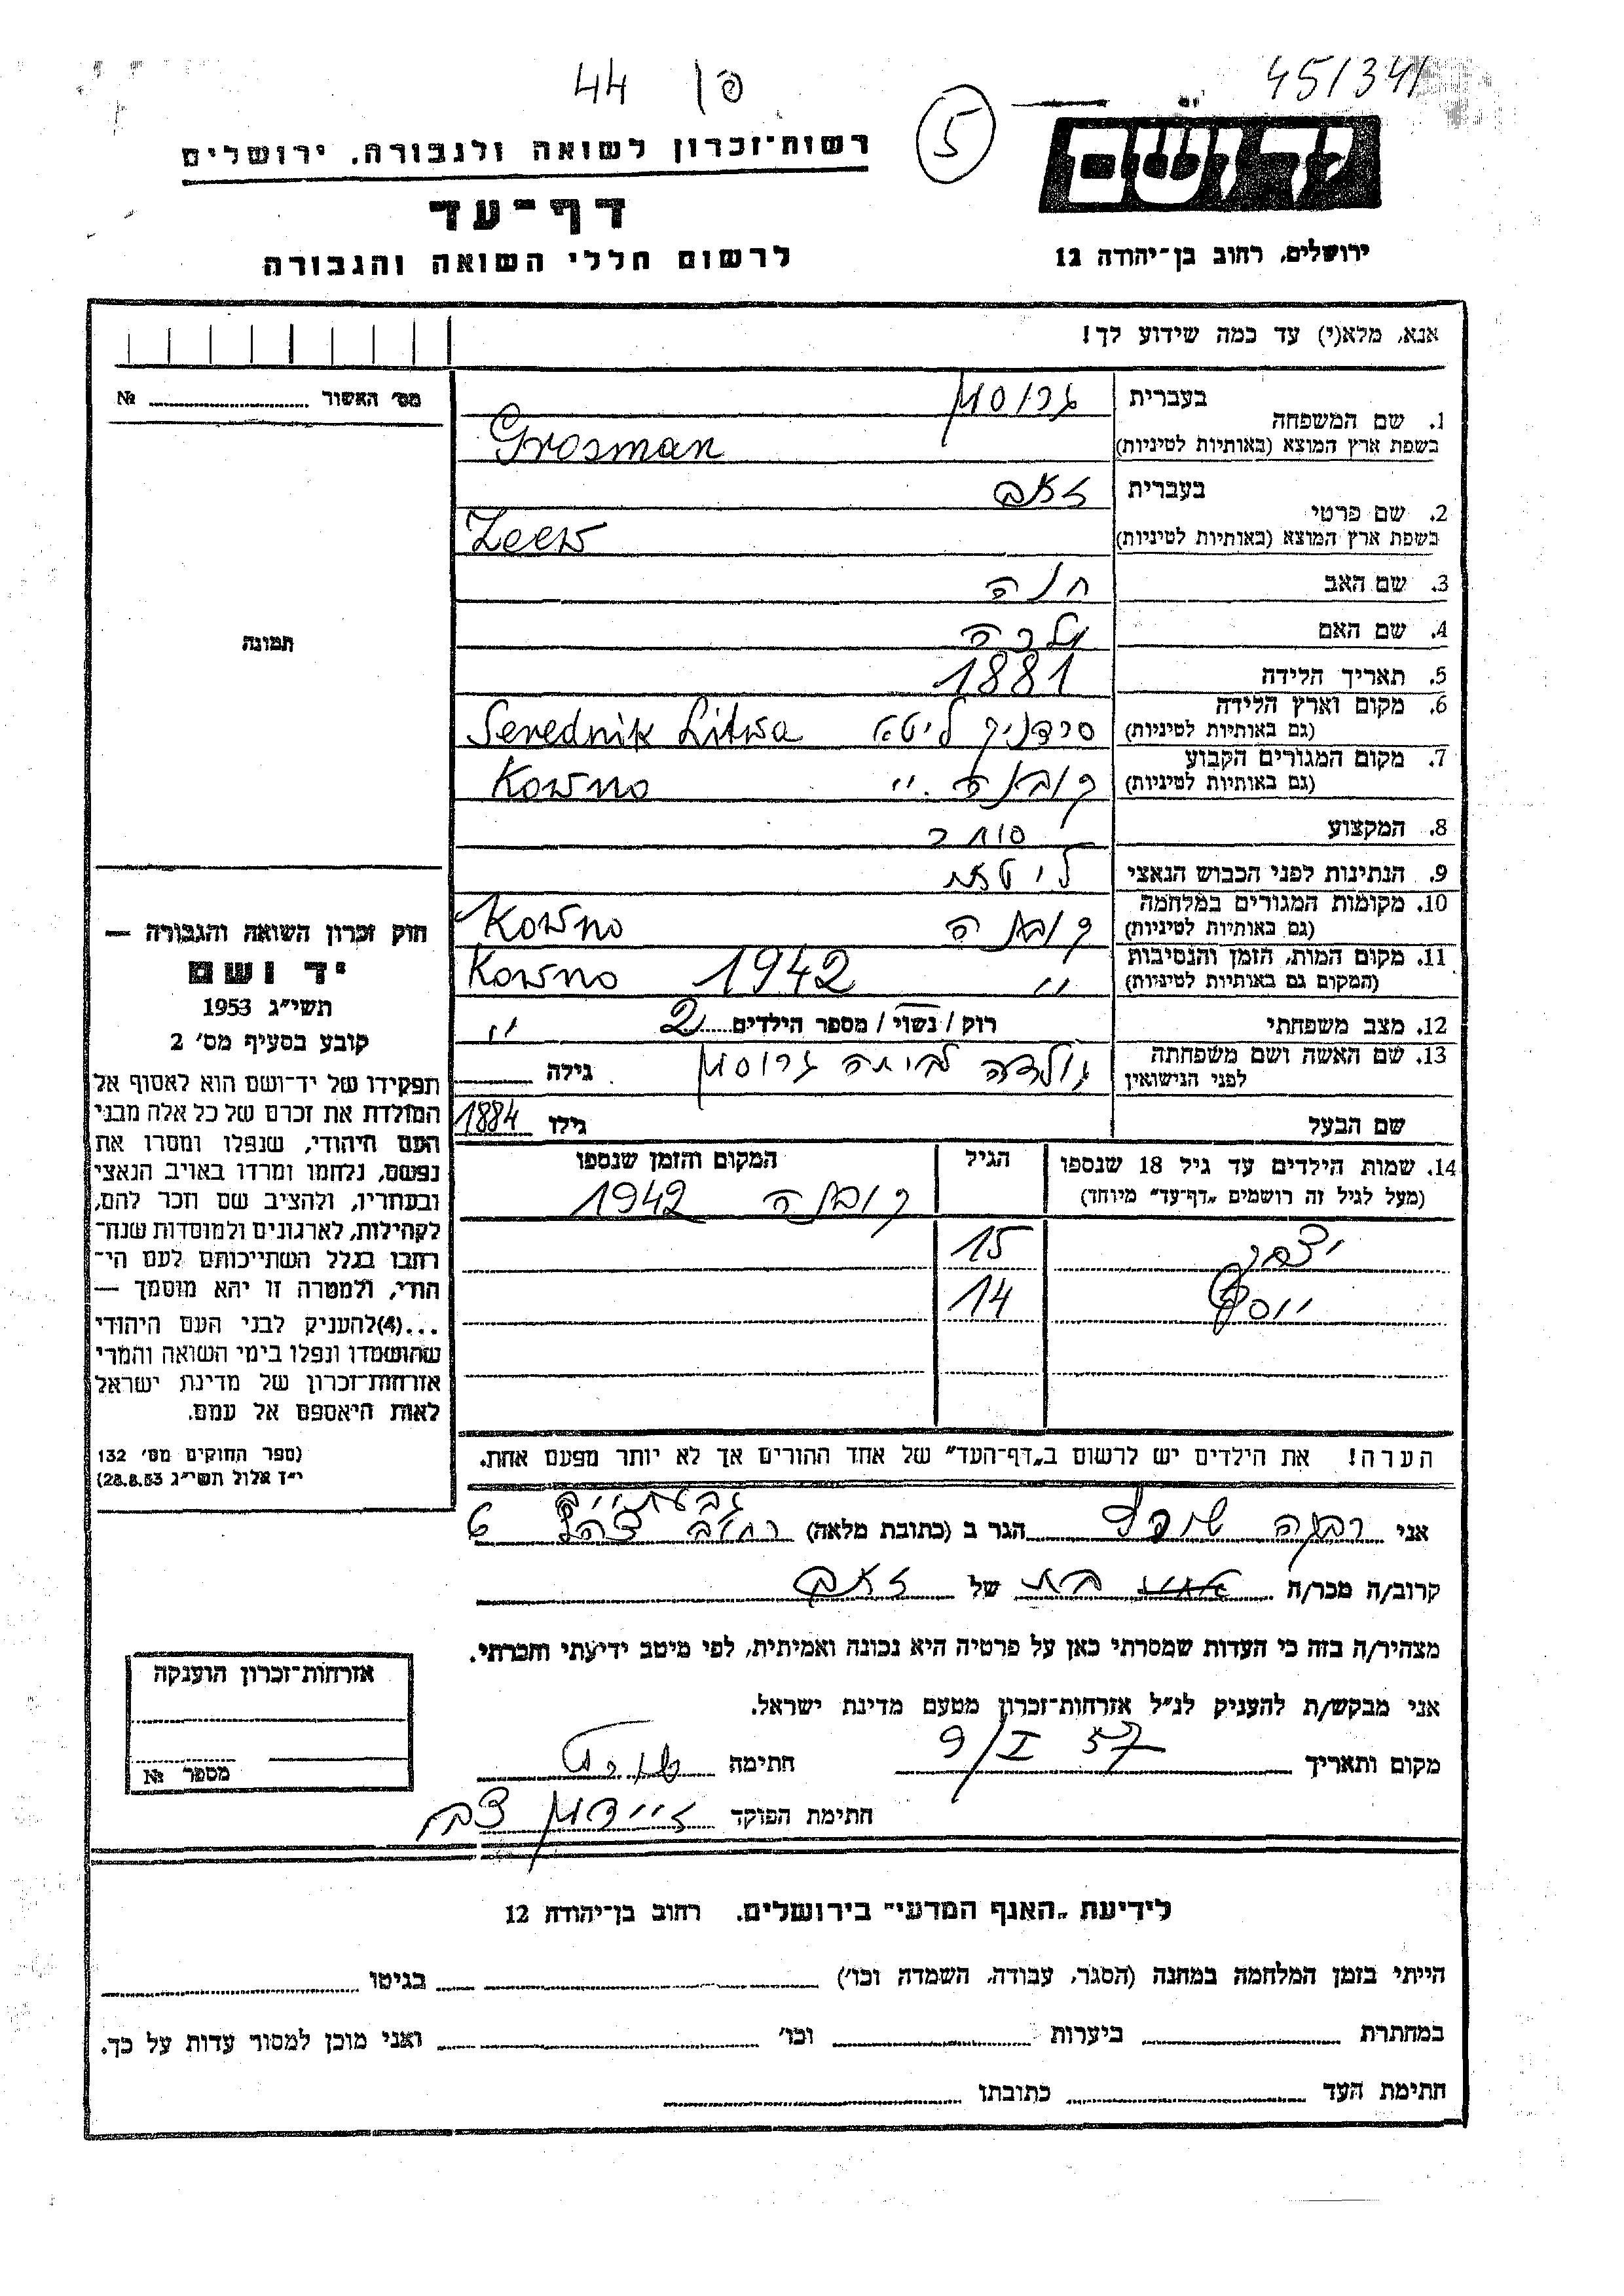 45/341
פ 44
5
יד ושם
רשות־זכרון לשואה ולגבורה, ירושלים
דף־עד
לרשום חללי השואה והגבורה
ירושלים, רחוב בן־יהודה 12
אנא, מלא(י) עד כמה שידוע לך!
מס׳ האשור № 
1. שם המשפחה בעברית גרוסמן
בשפת ארץ המוצא (באותיות לטיניות) Grosman
2. שם פרטי בעברית זאב
בשפת ארץ המוצא (באותיות לטיניות) Zeew
3. שם האב חנה
4. שם האם
5. תאריך הלידה 1881
6. מקום וארץ הלידה
(גם באותיות לטיניות) סרדניק ליטא Serednik Litwa
7. מקום המגורים הקבוע
(גם באותיות לטיניות) קובנה ״ Kowno
8. המקצוע סוחר
9. הנתינות לפני הכבוש הנאצי ליטאית
10. מקומות המגורים במלחמה
(גם באותיות לטיניות) קובנה Kowno
11. מקום המות, הזמן והנסיבות
(המקום גם באותיות לטיניות) ״ 1942 Kowno
12. מצב משפחתי רוק / נשוי / מספר הילדים 2 ״
13. שם האשה ושם משפחתה
לפני הנישואין גולדה לביתה גרוסמן גילה
שם הבעל גילו 1884
14. שמות הילדים עד גיל 18 שנספו הגיל המקום והזמן שנספו
(מעל לגיל זה רושמים „דף־עד״ מיוחד) קובנה 1942
יצחק 15
יוסף 14
הערה! את הילדים יש לרשום ב„דף־העד״ של אחד ההורים אך לא יותר מפעם אחת.
תמונה
חוק זכרון השואה והגבורה —
יד ושם
תשי״ג 1953
קובע בסעיף מס׳ 2
תפקידו של יד־ושם הוא לאסוף אל
המולדת את זכרם של כל אלה מבני
העם היהודי, שנפלו ומסרו את
נפשם, נלחמו ומרדו באויב הנאצי
ובעוזריו, ולהציב שם וזכר להם,
לקהילות, לארגונים ולמוסדות שנח־
רבו בגלל השתייכותם לעם הי־
הודי, ולמטרה זו יהא מוסמך —
...(4)להעניק לבני העם היהודי
שהושמדו ונפלו בימי השואה והמרי
אזרחות־זכרון של מדינת ישראל
לאות היאספם אל עמם.
(ספר החוקים מס׳ 132
י״ז אלול תשי״ג 28.8.53)
אני רבקה הגר ב (כתובת מלאה) גבעתיים רחוב
קרוב/ה מכר/ה בת של זאב
מצהיר/ה בזה כי העדות שמסרתי כאן על פרטיה היא נכונה ואמיתית, לפי מיטב ידיעתי והכרתי.
אני מבקש/ת להעניק לנ״ל אזרחות־זכרון מטעם מדינת ישראל.
מקום ותאריך 9/I 57 חתימה
חתימת הפוקד זיידמן צבי
אזרחות־זכרון הוענקה
מספר №
לידיעת „האגף המדעי״ בירושלים, רחוב בן־יהודה 12
הייתי בזמן המלחמה במחנה (הסגר, עבודה, השמדה וכו׳) בגיטו
במחתרת ביערות וכו׳ ואני מוכן למסור עדות על כך.
חתימת העד כתובתו